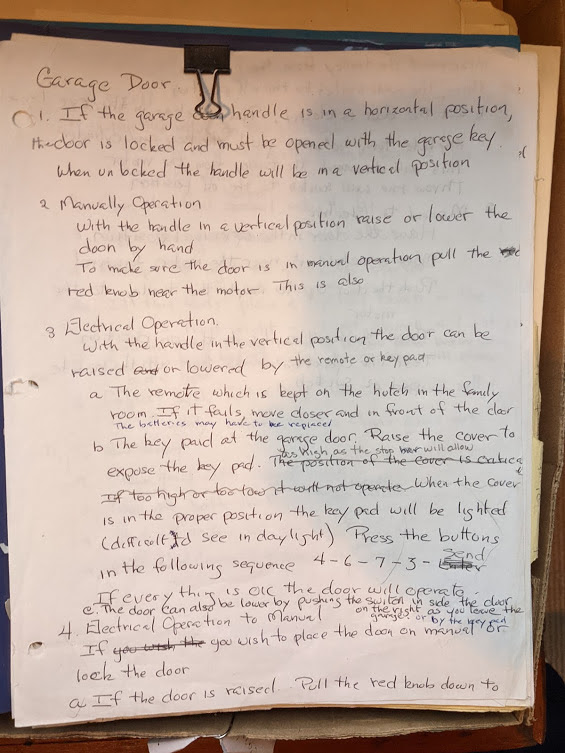 Garage Door
1. If the garage door handle is in a horizontal position,
the door is locked and must be opened with the garage key.
When unlocked the handle will be in a vertical position
2 Manually Operation
With the handle in a vertical position raise or lower the
door by hand
To make sure the door is in manual operation pull the
red knob near the motor. This is also
3 Electrical Operation.
With the handle in the vertical position the door can be
raised and or lowered by the remote or key pad
a The remote which is kept on the hutch in the family
room. If it fails, move closer and in front of the door
The batteries may have to be replaced
b The key paid at the garage door. Raise the cover to
as high as the stop bar will allow
expose the key pad. The position of the cover is critical
If too high or too low it will not operate When the cover
is in the proper position the key pad will be lighted
(difficult to see in day light) Press the buttons
Send
in the following sequence 4-6-7-3- Enter
If every thing is OK the door will operate.
c. The door can also be lower by pushing the switch in side the door
on the right as you leave the
garage. or by the key pad
4. Electrical Operation to Manual
If you wish the you wish to place the door on manual or
lock the door
a If the door is raised. Pull the red knob down to